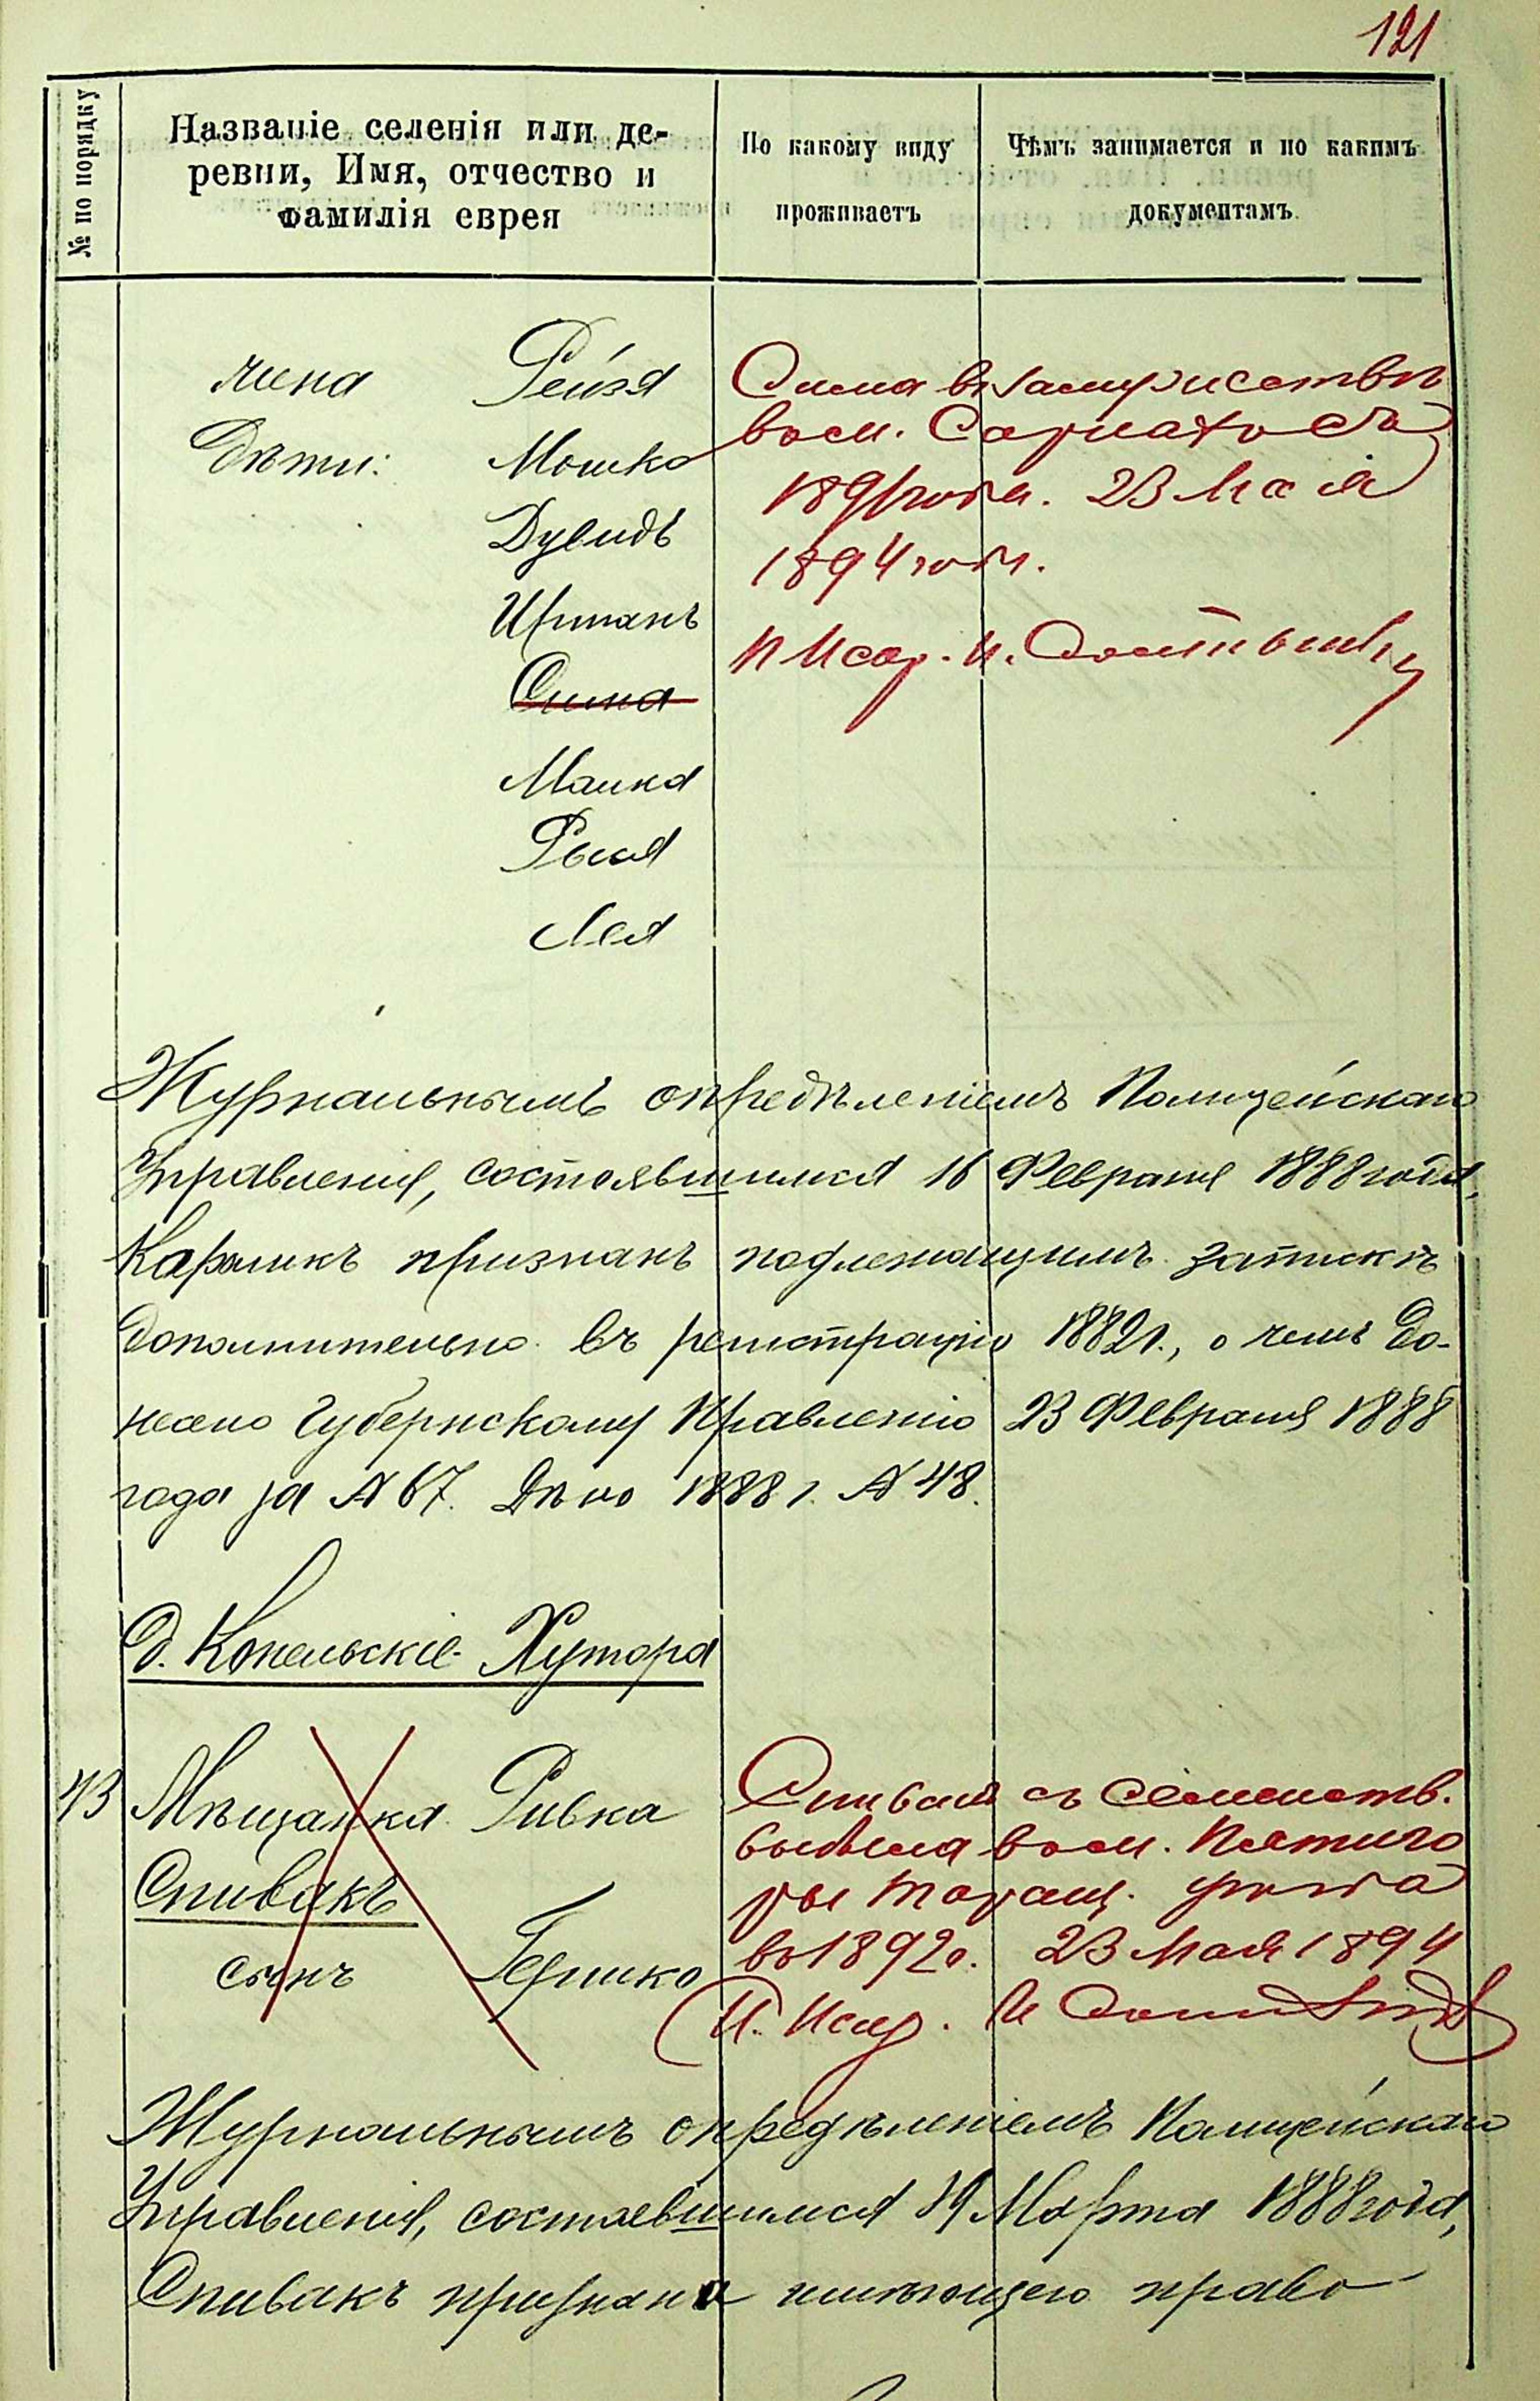 121
№ по порядку
Названіе селенія или де-
ревни, Имя, отчество и
фамилія еврея
По какому виду
проживаетъ
Чѣмъ занимается и по какимъ
документамъ.
жена Рейзя
Дѣти: Мошко
Дувидъ
Ицманъ
Сима
Малка
Рыся
Лея
Сима въ замужествѣ
въ м. съ
1891 года. 23 Мая
1894 года.
И Испр. И.
Журнальнымъ опредѣленіемъ Полицейскаго
Управленія, состоявшимся 16 Февраля 1888 года,
Караликъ признанъ подлежащимъ запискѣ
дополнительно въ регистрацію 1882 г., о чемъ до-
несено Губернскому Правленію 23 Февраля 1888
года за № 67. Дѣло 1888 г. № 48.
д. Конельскіе Хутора
43 Мѣщанка Ривка
Спивакъ
сынъ Гершко
Спивак съ семейств.
выбыла въ м. Пятиго
ры Таращ. уѣзда
въ 1892 г. 23 Мая 1894
И. Испр. И
Журнальнымъ опредѣленіемъ Полицейскаго
Управленія, состоявшимся 19 Марта 1888 года,
Спивакъ признана имѣющею право